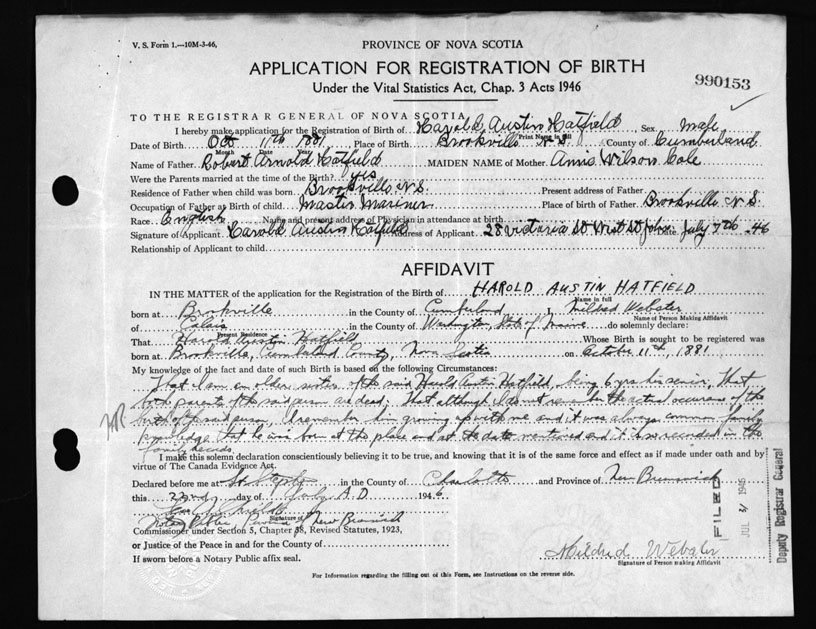 V. S. Form 1.---10M-3-46,
PROVINCE OF NOVA SCOTIA
APPLICATION FOR REGISTRATION OF BIRTH
Under the Vital Statistics Act, Chap. 3 Acts 1946
990153
TO THE REGISTRAR GENERAL OF NOVA SCOTIA
I hereby make application for the Registration of Birth of Harold Austin Hatfield Sex Male
Print Name in full
Date of Birth Oct 11th 1881 Place of Birth Brookville N.S. County of Cumberland
Month Date Year
Name of Father Robert Arnold Hatfield MAIDEN NAME of Mother Annis Wilson Cole
Were the Parents married at the time of the Birth? yes
Residence of Father when child was born Brookville N.S. Present address of Father
Occupation of Father at Birth of child Master Mariner Place of birth of Father Brookville N.S.
Race English Name and present address of Physician in attendance at birth
Signature of Applicant Harold Austin Hatfield Address of Applicant 28 Victoria St West St John Date July 7th 46
Relationship of Applicant to child
AFFIDAVIT
IN THE MATTER of the application for the Registration of the Birth of HAROLD AUSTIN HATFIELD
Name in full
born at Brookville in the County of Cumberland I, Mildred Webster
Name of Person Making Affidavit
of Calais in the County of Washington, State of Maine do solemnly declare:
Present Residence
That Harold Austin Hatfield Whose Birth is sought to be registered was
born at Brookville, Cumberland County, Nova Scotia on October 11th, 1881
My knowledge of the fact and date of such Birth is based on the following Circumstances:
That I am an older sister of the said Harold Austin Hatfield, being 6 yrs his senior, That
both parents of the said person are dead. That although I do not remember the actual occurence of the
birth of the said person, I remember him growing up with me and it was always common family
knowledge that he was born at the place and at the date mentioned and it is so recorded in the
family records.
I make this solemn declaration conscientiously believing it to be true, and knowing that it is of the same force and effect as if made under oath and by
virtue of The Canada Evidence Act.
Declared before me at St. Stephen in the County of Charlotte and Province of New Brunswick
this 22nd day of July A.D. 1946
Signature of
Notary Public, Province of New Brunswick
Commissioner under Section 5, Chapter 38, Revised Statutes, 1923,
or Justice of the Peace in and for the County of
If sworn before a Notary Public affix seal.
Mildred Webster
Signature of Person making Affidavit
FILED
JUL 31 1946
Deputy Registrar General
For Information regarding the filling out of this Form, see Instructions on the reverse side.